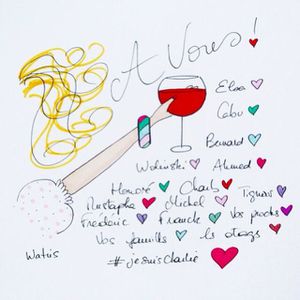 A Vous!
Elsa
Cabu
Bernard
Wolinski Ahmed
Honoré Charb Tignous
Mustapha Michel
Frédéric Franck Vos proches
Vos familles ls otages
#jesuischarlie
Watiis